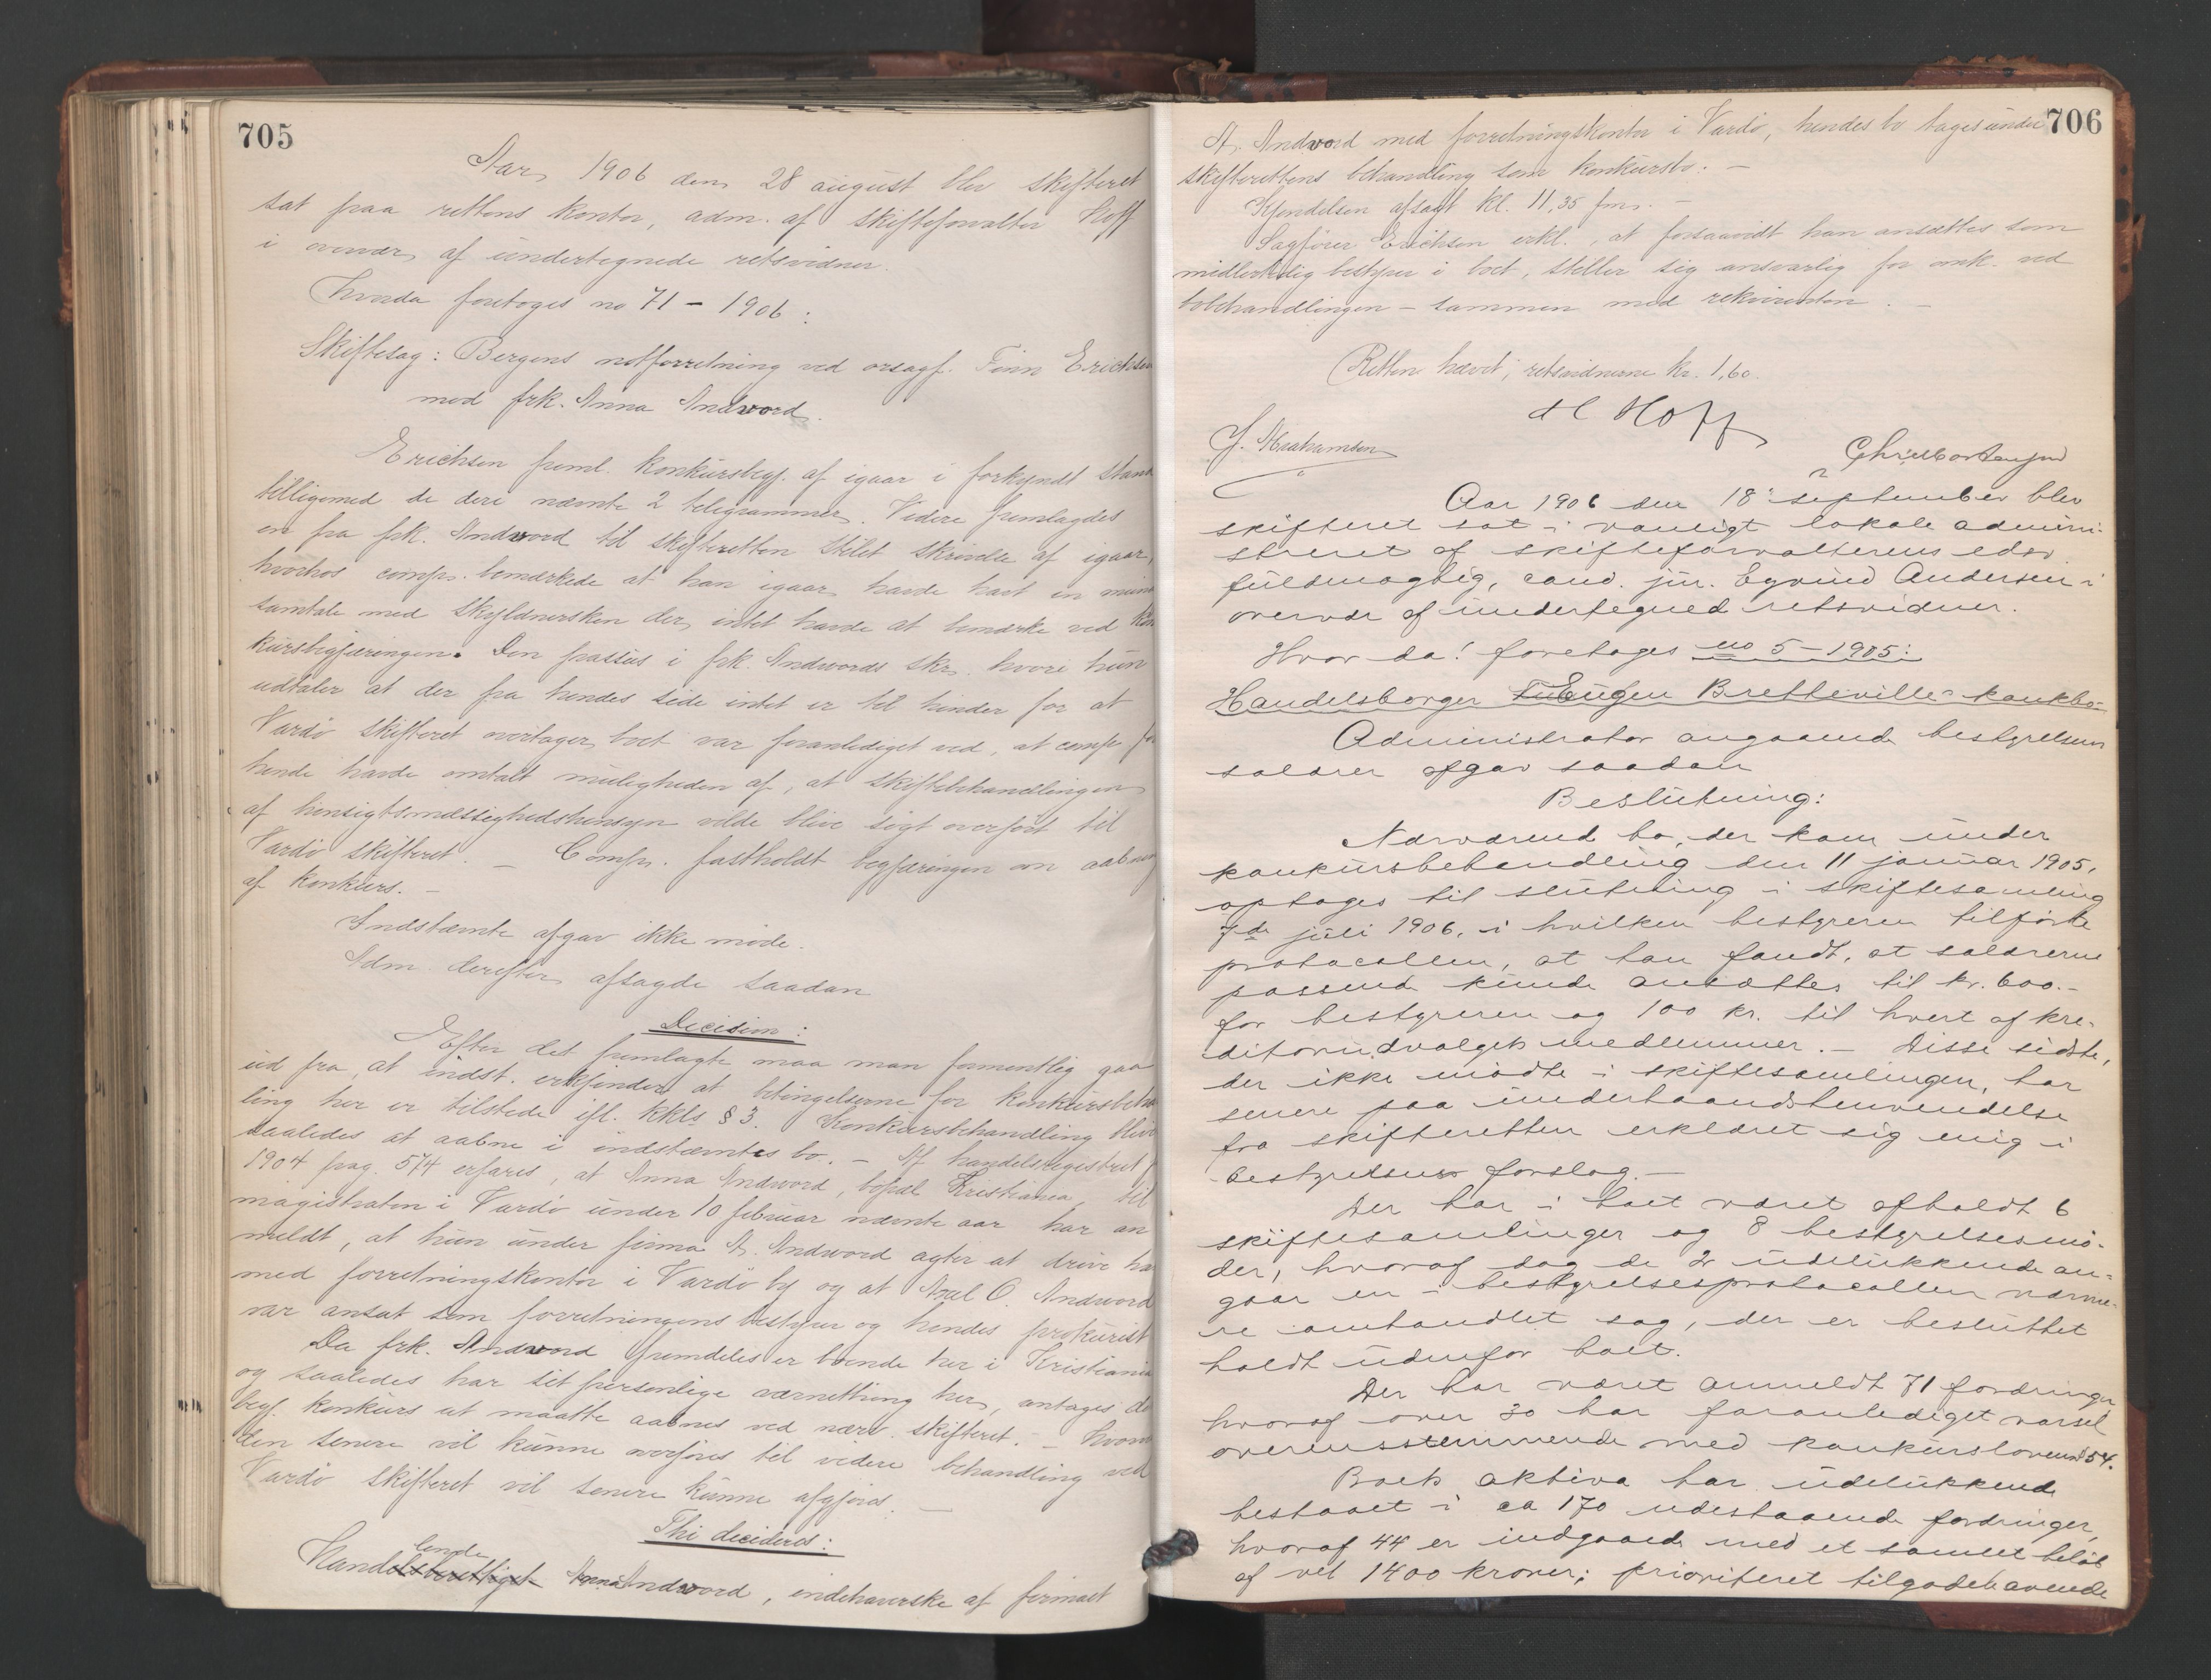 705
Aar 1906 den 28 august blev skifteret
sat paa rettens kontor, adm. af skifteforvalter Hoff
i overvær af undertegnede retsvidner.
Hvorda foretoges no 71 - 1906:
Skiftesag: Bergens notforretning ved orsagf. Finn Erichsen
mod frk. Anna Andvord.
Erichsen freml. konkursbegj. af igaar i forkyndt stand
tilligemed de deri nævnte 2 telegrammer. Videre fremlagdes
en fra frk. Andvord til skifteretten stilet skrivelse af igaar,
hvorhos comp. bemærkede at han igaar havde havt en
samtale med skyldnersken der intet havde at bemærke ved kon
kursbegjæringen. Den passus i frk. Andvords skr. hvori hun
udtaler at der fra hendes side intet er til hinder for at
Vardø skifteret overtager boet var foranlediget ved, at comp. for
hende havde omtalt muligheden af, at skiftebehandlingen
af hensigtsmæssighedshensyn vilde blive søgt overført til
Vardø skifteret. - Comp. fastholdt begjæringen om aabning
af konkurs. -
Indstævnte afgav ikke møde.
Adm. derefter afsagde saadan
Decision:
Efter det fremlagte maa man formentlig gaa
ud fra, at indst. erkjender at betingelserne for konkursbehand
ling her er tilstede ifl. kkls § 3. Konkursbehandling bliver
saaledes at aabne i indstævntes bo. - Af handelsregistret
1904 pag. 574 erfares, at Anna Andvord, bopæl Kristiania, til
magistraten i Vardø under 10 februar nævnte aar har an
meldt, at hun under firma A. Andvord agter at drive ha
med forretningskontor i Vardø by og at Axel O. Andvord
var ansat som forretningens bestyrer og hendes prokurist
Da frk. Andvord fremdeles er boende her i Kristiania
og saaledes har sit personlige værnething her, antages de
begj. konkurs at maatte aabnes ved nærv. skifteret. - Hvorvidt
den senere vil kunne overføres til videre behandling ved
Vardø skifteret vil senere kunne afgjøres. -
Thi decideres:
lende
Handelsberettiget Anna Andvord, indehaverske af firmaet
706
A. Andvord med forretningskontor i Vardø, hendes bo tages under
skifterettens behandling som konkursbo. -
Kjendelsen afsagt kl. 11,35 fm. -
Sagfører Erichsen erkl., at forsaavidt han ansættes som
midlertidig bestyrer i boet, stiller sig ansvarlig for omk. ved
bobehandlingen - sammen med rekvirenten. -
Retten hævet, retsvidnerne kr. 1,60.
Hoff
Aar 1906 den 18. september blev
skifteret sat i vanligt lokale admini-
streret af skifteforvalterens edsv.
fuldmægtig, cand. jur. Eyvind Andersen i
overvær af undertegned retsvidner.
Hvor da! foretoges no 5 - 1905:
Handelsborger Eugen Bretteville konkbo
Administrator angaaende bestyrelsens
salærer afgav saadan
Beslutning:
Nærværend bo, der kom under
konkursbehandling den 11 januar 1905,
optoges til slutning i skiftesamling
7de juli 1906, i hvilken bestyreren tilførte
protocollen, at han fandt, at salærerne
passend kunde ansættes til kr. 600.-
for bestyreren og 100 kr. til hvert af kre-
ditorudvalgets medlemmer. - Disse sidste,
der ikke mødte i skiftesamlingen, har
senere paa underhaandshenvendelse
fra skifteretten erklæret sig enig i
bestyrelsens forslag. -
Der har i boet været afholdt 6
skiftesamlinger og 8 bestyrelsesmø-
der, hvoraf dog de 2 udelukkende an-
gaar en i bestyrelsesprotocollen nærme-
re omhandlet sag, der er besluttet
holdt udenfor boet.
Der har været anmeldt 71 fordringer
hvoraf over 30 har foranlediget varsel
overensstemmende med konkurslovens 54.
Boets aktiva har udelukkende
bestaaet i ca 170 udestaaende fordringer,
hvoraf 44 er indgaaede med et samlet beløb
af vel 1400 kroner; prioriteret tilgodehavende